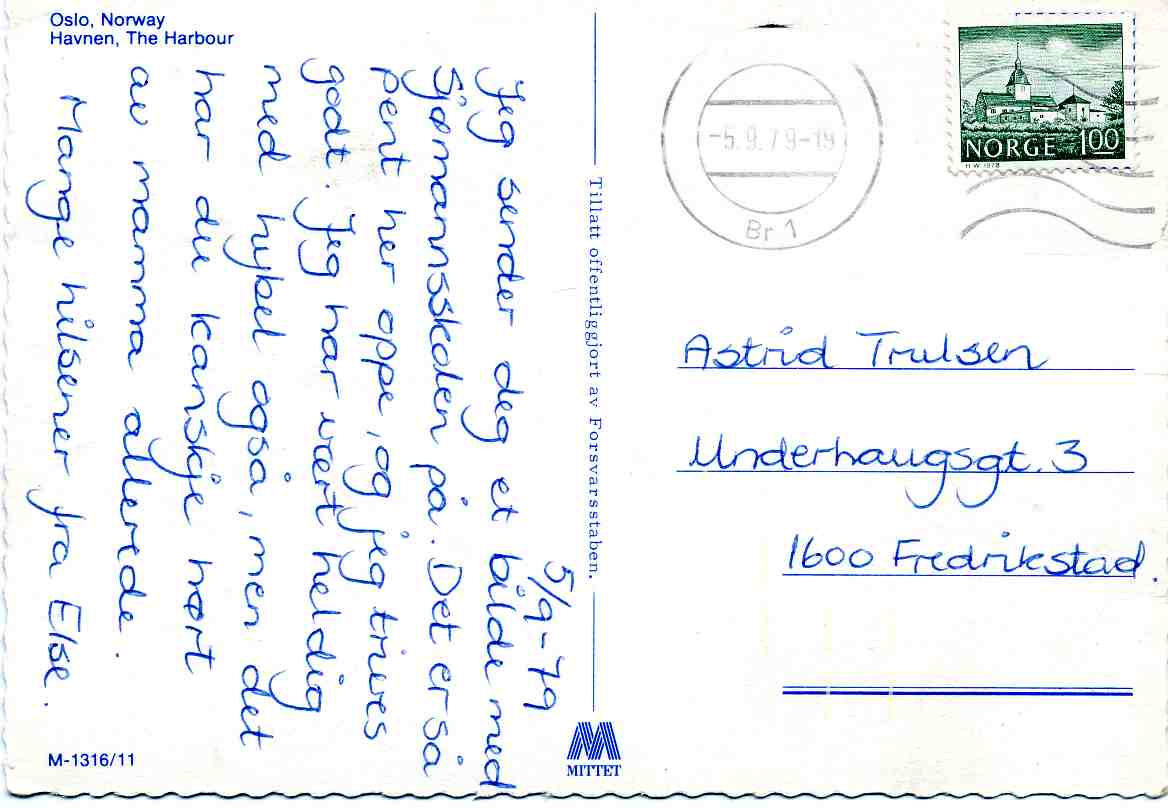 Oslo, Norway
Havnen, The Harbour
5/9-79
Jeg sender deg et bilde med
Sjømannsskolen på. Det er så
pent her oppe, og jeg trives
godt. Jeg har vært heldig
med hybel også, men det
har du kanskje hørt
av mamma allerede.
Mange hilsener fra Else.
M-1316/11
Tillatt offentliggjort av Forsvarsstaben.
MITTET
-5.9.79-19
Br 1
NORGE 1.00
H.W. 1978
Astrid Trulsen
Underhaugsgt. 3
1600 Fredrikstad.